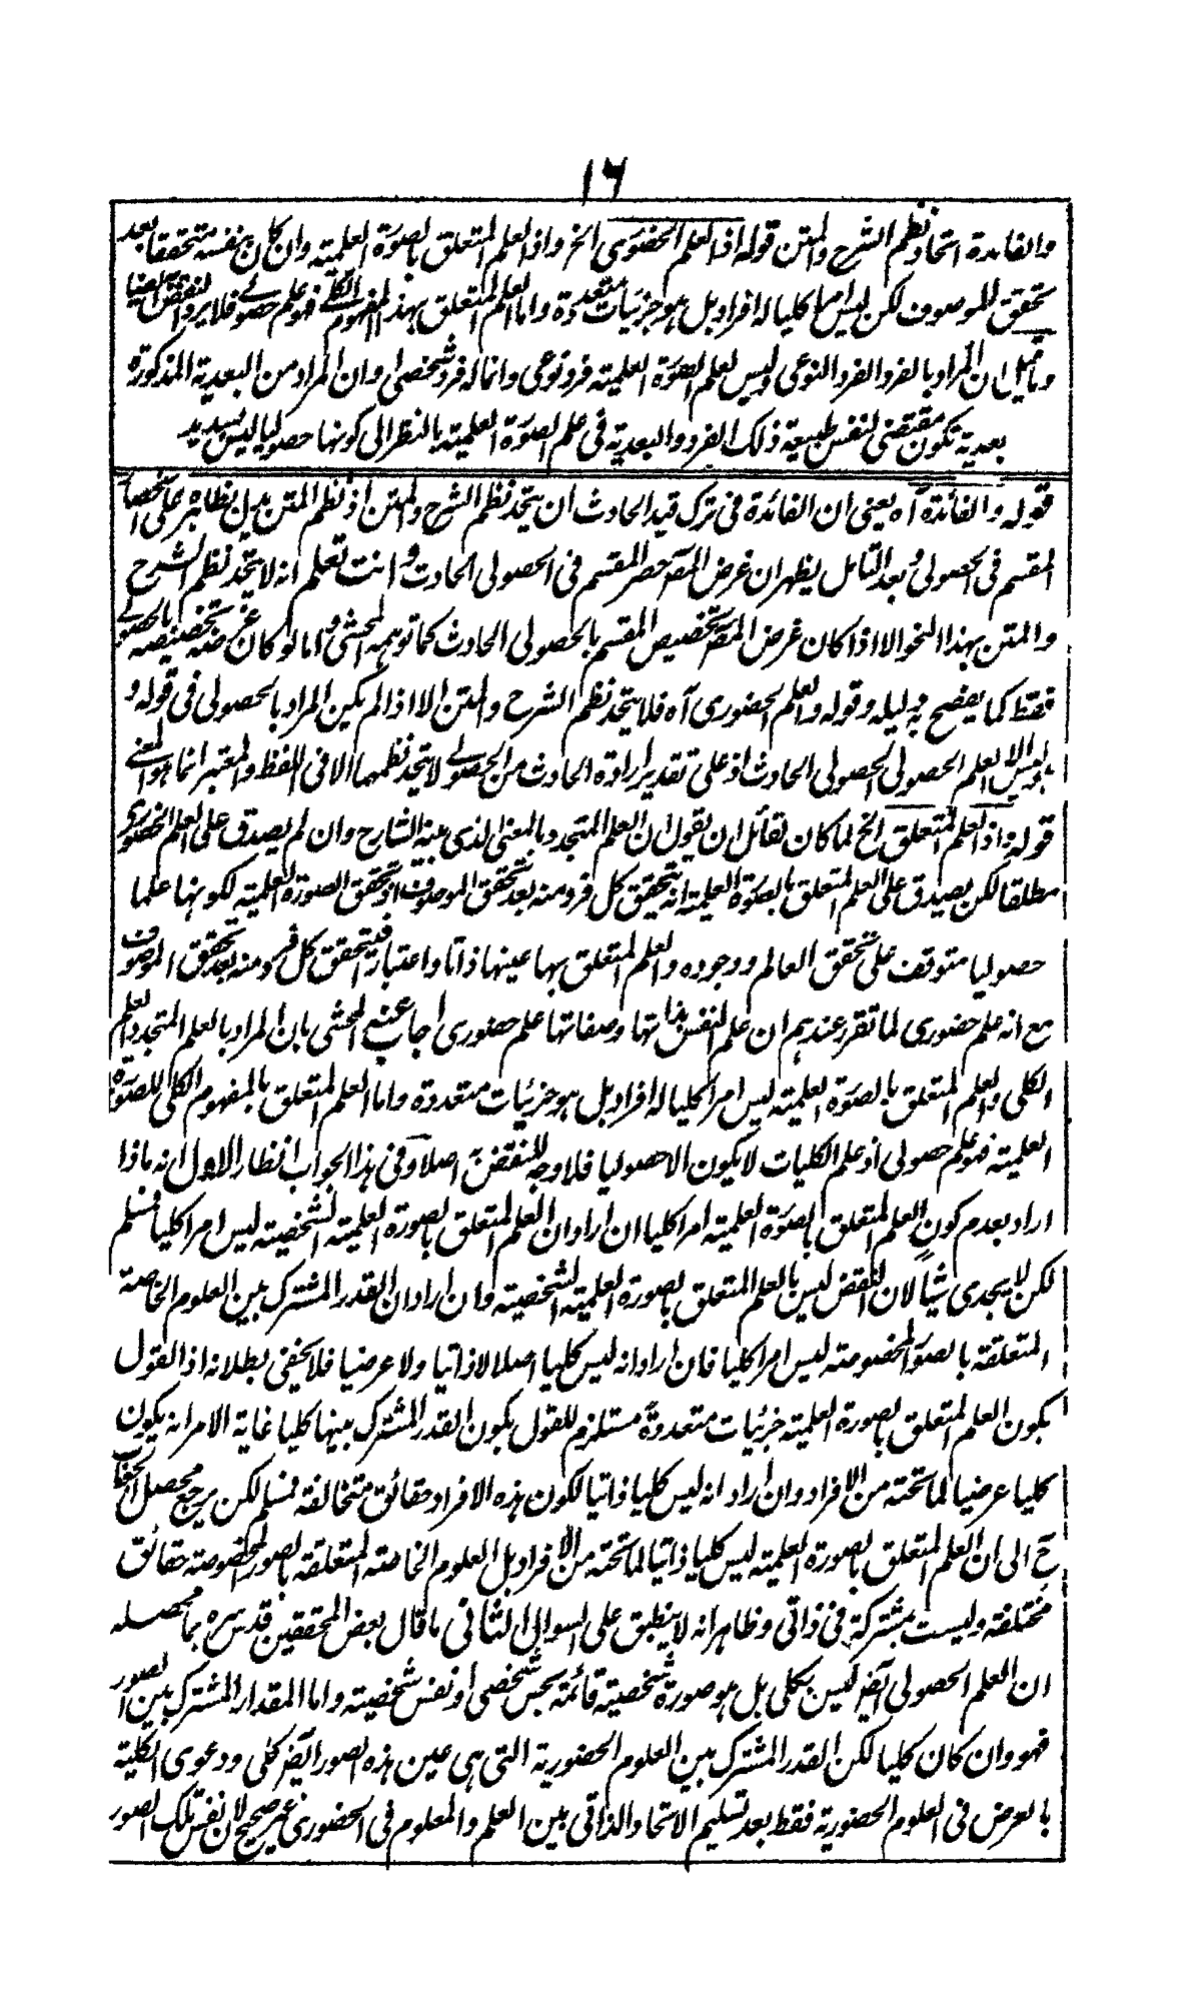 ١٦
والفائدة اتحاد نظم الشرح والمتن قوله اذ العلم الحضوري الخ واذ العلم المتعلق بالصورة العلمية وان كان بنفسه متحققا بعد
تحقق الموصوف لكن ليس امرا كليا له افراد بل هو جزئيات متعددة واما العلم المتعلق بهذا المفهوم الكلي فهو علم حصولي فلا يرد النقض ايضا
وما قيل ان المراد بالفرد الفرد النوعي وليس لعلم الصورة العلمية فرد نوعي وانما له فرد شخصي او ان المراد من البعدية المذكورة
بعدية تكون مقتضى لنفس طبيعة ذلك الفرد والبعدية في علم الصورة العلمية بالنظر الى كونها حصوليا ليس بسديد
قوله والفائدة آه يعني ان الفائدة في ترك قيد الحادث ان يتحد نظم الشرح والمتن اذ نظم المتن يدل بظاهره على انحصار
المقسم في الحصولي وبعد التامل يظهر ان غرض المصـ حصر المقسم في الحصولي الحادث وانت تعلم انه لا يتحد نظم الشرح
والمتن بهذا النحو الا اذا كان غرض المصـ تخصيص المقسم بالحصولي الحادث كما توهمه المحشي واما لو كان غرضه تخصيصه بالحصولي
فقط كما يفصح به دليله وقوله والعلم الحضوري آه فلا يتحد نظم الشرح والمتن الا اذا لم يكن المراد بالحصولي في قوله و
ليس الا العلم الحصولي الحصولي الحادث اذ على تقدير ارادة الحادث من الحصولي لا يتحد نظمهما الا في اللفظ والمعتبر انما هو المعنى
قوله واذ العلم المتعلق الخ لما كان لقائل ان يقول ان العلم المتجدد بالمعنى الذي عينه الشارح وان لم يصدق على العلم الحضوري
مطلقا لكن يصدق على العلم المتعلق بالصورة العلمية انه يتحقق كل فرد منه بعد تحقق الموصوف اذ تحقق الصورة العلمية لكونها علما
حصوليا متوقف على تحقق العالم ووجوده والعلم المتعلق بها عينها ذاتا واعتبارا فيتحقق كل فرد منه بعد تحقق الموصوف
مع انه علم حضوري لما تقرر عندهم ان علم النفس بذاتها وصفاتها علم حضوري اجاب عنه المحشي بان المراد بالعلم المتجدد العلم
الكلي والعلم المتعلق بالصورة العلمية ليس امرا كليا له افراد بل هو جزئيات متعددة واما العلم المتعلق بالمفهوم الكلي للصورة
العلمية فهو علم حصولي اذ علم الكليات لا يكون الا حصوليا فلا وجه للنقض به اصلا وفي هذا الجواب انظار الاول انه ماذا
اراد بعدم كون العلم المتعلق بالصورة العلمية امرا كليا ان اراد ان العلم المتعلق بالصورة العلمية الشخصية ليس امرا كليا فمسلم
لكن لا يجدي شيئا لان النقض ليس بالعلم المتعلق بالصورة العلمية الشخصية وان اراد ان القدر المشترك بين العلوم الخاصة
المتعلقة بالصور المخصوصة ليس امرا كليا فان اراد انه ليس كليا اصلا لا ذاتيا ولا عرضيا فلا يخفى بطلانه اذ القول
بكون العلم المتعلق بالصورة العلمية جزئيات متعددة مستلزم للقول بكون القدر المشترك بينها كليا غاية الامر انه يكون
كليا عرضيا لما تحته من الافراد وان اراد انه ليس كليا ذاتيا لكون هذه الافراد حقائق متخالفة فمسلم لكن يرجع محصل الجواب
ح الى ان العلم المتعلق بالصورة العلمية ليس كليا ذاتيا لما تحته من الافراد بل العلوم الخاصة المتعلقة بالصور المخصوصة حقائق
مختلفة وليست مشتركة في ذاتي وظاهر انه لا ينطبق على السوال الثاني ما قال بعض المحققين قدس سره بما محصله
ان العلم الحصولي ايضا ليس بكلي بل هو صورة شخصية قائمة بحس شخصي او نفس شخصية واما المقدار المشترك بين الصور
فهو وان كان كليا لكن القدر المشترك بين العلوم الحضورية التي هي عين هذه الصور ايضا كلي ودعوى الكلية
بالعرض في العلوم الحضورية فقط بعد تسليم الاتحاد الذاتي بين العلم والمعلوم في الحضوري غير صحيح لان نفس تلك الصور